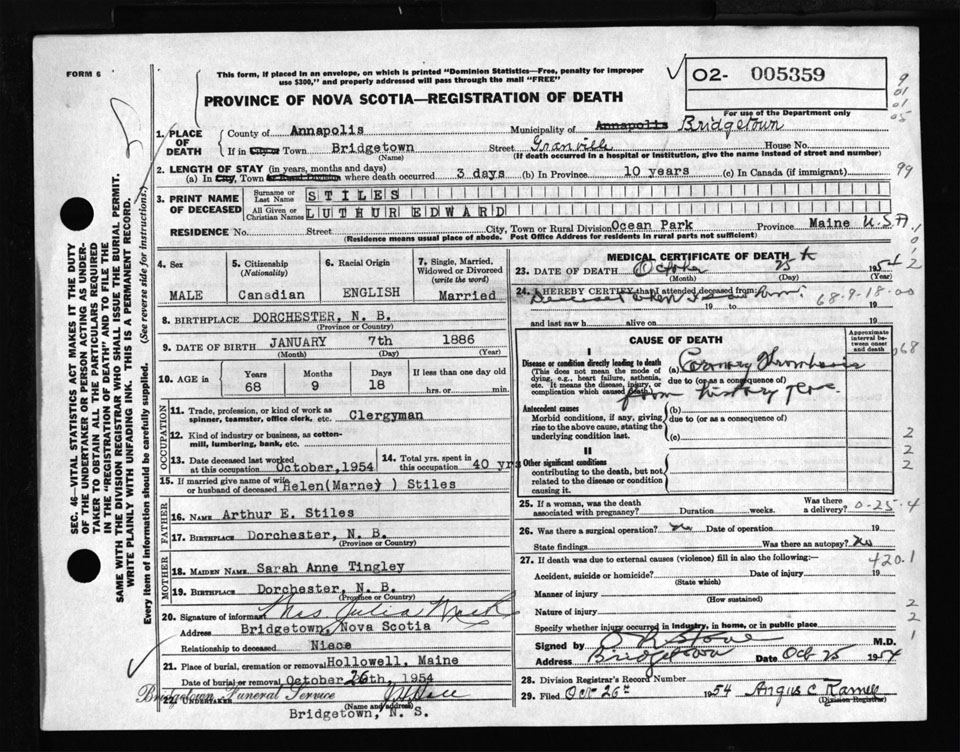 FORM 6
This form, if placed in an envelope, on which is printed "Dominion Statistics—Free, penalty for improper
use $300," and properly addressed will pass through the mail "FREE"
PROVINCE OF NOVA SCOTIA—REGISTRATION OF DEATH
O2- 005359
For use of the Department only
9
01
01
05
99
1. PLACE OF DEATH
County of Annapolis Municipality of Annapolis Bridgetown
If in City or Town Bridgetown Street Granville House No.
(Name) (If death occurred in a hospital or institution, give the name instead of street and number)
2. LENGTH OF STAY (in years, months and days)
(a) In City, Town or Rural Division where death occurred 3 days (b) In Province 10 years (c) In Canada (if immigrant)
3. PRINT NAME OF DECEASED
Surname or Last Name STILES
All Given or Christian Names LUTHUR EDWARD
RESIDENCE No. Street City, Town or Rural Division Ocean Park Province Maine U.S.A
(Residence means usual place of abode. Post Office Address for residents in rural parts not sufficient)
4. Sex
MALE
5. Citizenship
(Nationality)
Canadian
6. Racial Origin
ENGLISH
7. Single, Married, Widowed or Divorced
(write the word)
Married
8. BIRTHPLACE DORCHESTER, N. B.
(Province or Country)
9. DATE OF BIRTH JANUARY 7th 1886
(Month) (Day) (Year)
10. AGE in Years Months Days If less than one day old
68 9 18 hrs. or min.
OCCUPATION
11. Trade, profession, or kind of work as
spinner, teamster, office clerk, etc. Clergyman
12. Kind of industry or business, as cotton-
mill, lumbering, bank, etc.
13. Date deceased last worked
at this occupation October, 1954
14. Total yrs. spent in
this occupation 40 yrs
15. If married give name of wife
or husband of deceased Helen (Marney) Stiles
FATHER
16. NAME Arthur E. Stiles
17. BIRTHPLACE Dorchester, N. B.
(Province or Country)
MOTHER
18. MAIDEN NAME Sarah Anne Tingley
19. BIRTHPLACE Dorchester, N. B.
(Province or Country)
20. Signature of informant Mrs Julia
Address Bridgetown, Nova Scotia
Relationship to deceased Niece
21. Place of burial, cremation or removal Hollowell, Maine
Date of burial or removal October 26th, 1954
Bridgetown Funeral Service
22. UNDERTAKER
(Name and address)
Bridgetown, N. S.
MEDICAL CERTIFICATE OF DEATH
23. DATE OF DEATH October 1954
(Month) (Day)
24. I HEREBY CERTIFY that I attended deceased from:
Deceased when I saw him 68-9-18-00
19 to 19
and last saw h alive on 19
CAUSE OF DEATH
Approximate interval between onset and death
I
Disease or condition directly leading to death
(This does not mean the mode of
dying, e.g., heart failure, asthenia,
etc. It means the disease, injury, or
complication which caused death.)
(a) Coronary Thrombosis
due to (or as a consequence of)
from history
Antecedent causes
Morbid conditions, if any, giving
rise to the above cause, stating the
underlying condition last.
(b)
due to (or as a consequence of)
(c)
II
Other significant conditions
contributing to the death, but not
related to the disease or condition
causing it.
25. If a woman, was the death
associated with pregnancy? Duration weeks. Was there a delivery? 0-25-4
26. Was there a surgical operation? No Date of operation 19
State findings Was there an autopsy? No
27. If death was due to external causes (violence) fill in also the following:— 420.1
Accident, suicide or homicide? Date of injury 19
(State which)
Manner of injury
(How sustained)
Nature of injury
Specify whether injury occurred in industry, in home, or in public place
Signed by M.D.
Address Bridgetown Date Oct 25 1954
28. Division Registrar's Record Number
29. Filed Oct 26th 1954 Angus C.
(Division Registrar)
SEC. 46—VITAL STATISTICS ACT MAKES IT THE DUTY
OF THE UNDERTAKER OR PERSON ACTING AS UNDER-
TAKER TO OBTAIN ALL THE PARTICULARS REQUIRED
IN THE "REGISTRATION OF DEATH" AND TO FILE THE
SAME WITH THE DIVISION REGISTRAR WHO SHALL ISSUE THE BURIAL PERMIT.
WRITE PLAINLY WITH UNFADING INK. THIS IS A PERMANENT RECORD.
Every item of information should be carefully supplied. (See reverse side for instructions.)